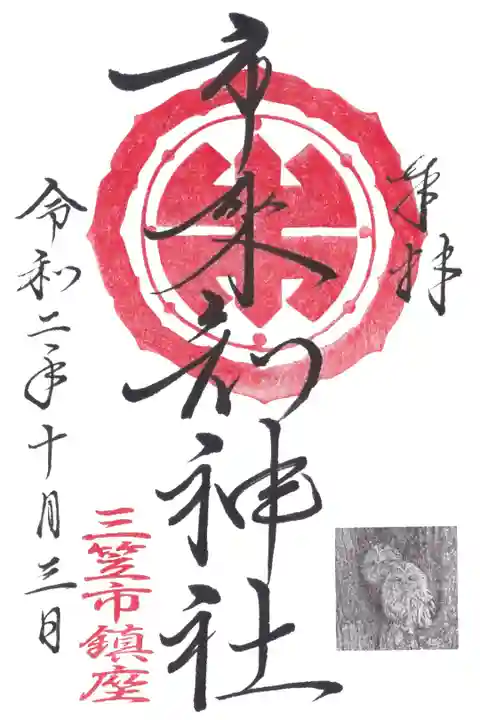 奉拝
市来知神社
三笠市鎮座
令和二年十月三日